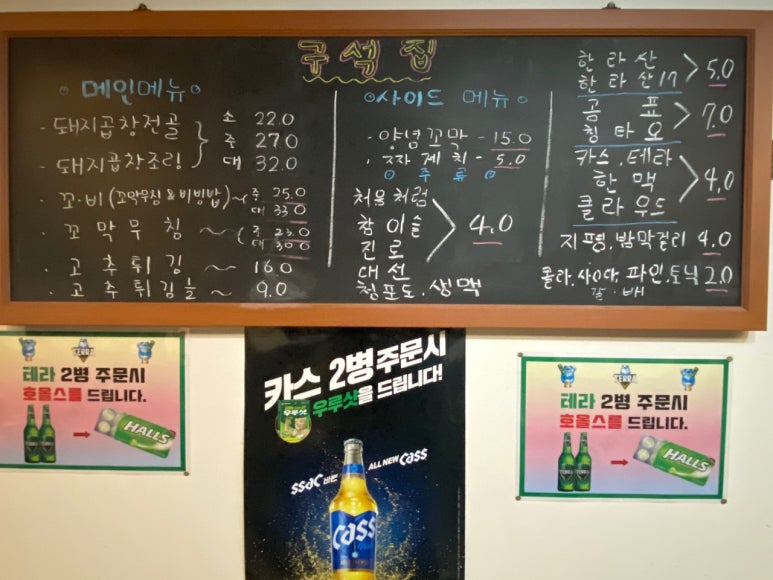 구석집
메인메뉴
· 돼지곱창전골
· 돼지곱창조림
소 22.0
중 27.0
대 32.0
· 꼬·비 (꼬막무침 & 비빔밥) ~ 중 25.0
대 33.0
· 꼬막무침 ~ 중 23.0
대 30.0
· 고추튀김 ~ 16.0
· 고추튀김들 ~ 9.0
사이드 메뉴
· 양념꼬막 - 15.0
- 5.0
주류
처음처럼
참이슬
진로
대선
청포도. 생맥
> 4.0
한라산
한라산17
> 5.0
곰표
칭타오
> 7.0
카스. 테라
한맥
클라우드
> 4.0
지평. 밤막걸리 4.0
콜라. 사이다. 파인. 토닉 2.0
갈·배
TERRA
테라 2병 주문시
호올스를 드립니다.
TERRA
HALLS
카스 2병 주문시
우루샷을 드립니다!
우루샷
ssac 바꾼 ALL NEW Cass
Cass
TERRA
테라 2병 주문시
호올스를 드립니다.
TERRA
HALLS